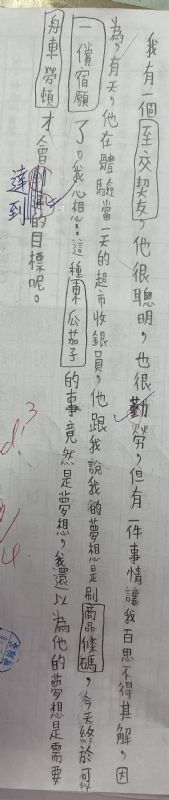 我有一個至交契友，他很聰明，也很勤勞，但有一件事情讓我百思不得其解，因
為，有天，他在體驗當一天的超市收銀員，他跟我說我的夢想是刷商品條碼，今天終於可
一償宿願了。我心想：這種東瓜茄子的事竟然是夢想，我還以為他的夢想是需要
舟車勞頓才會達到的目標呢。